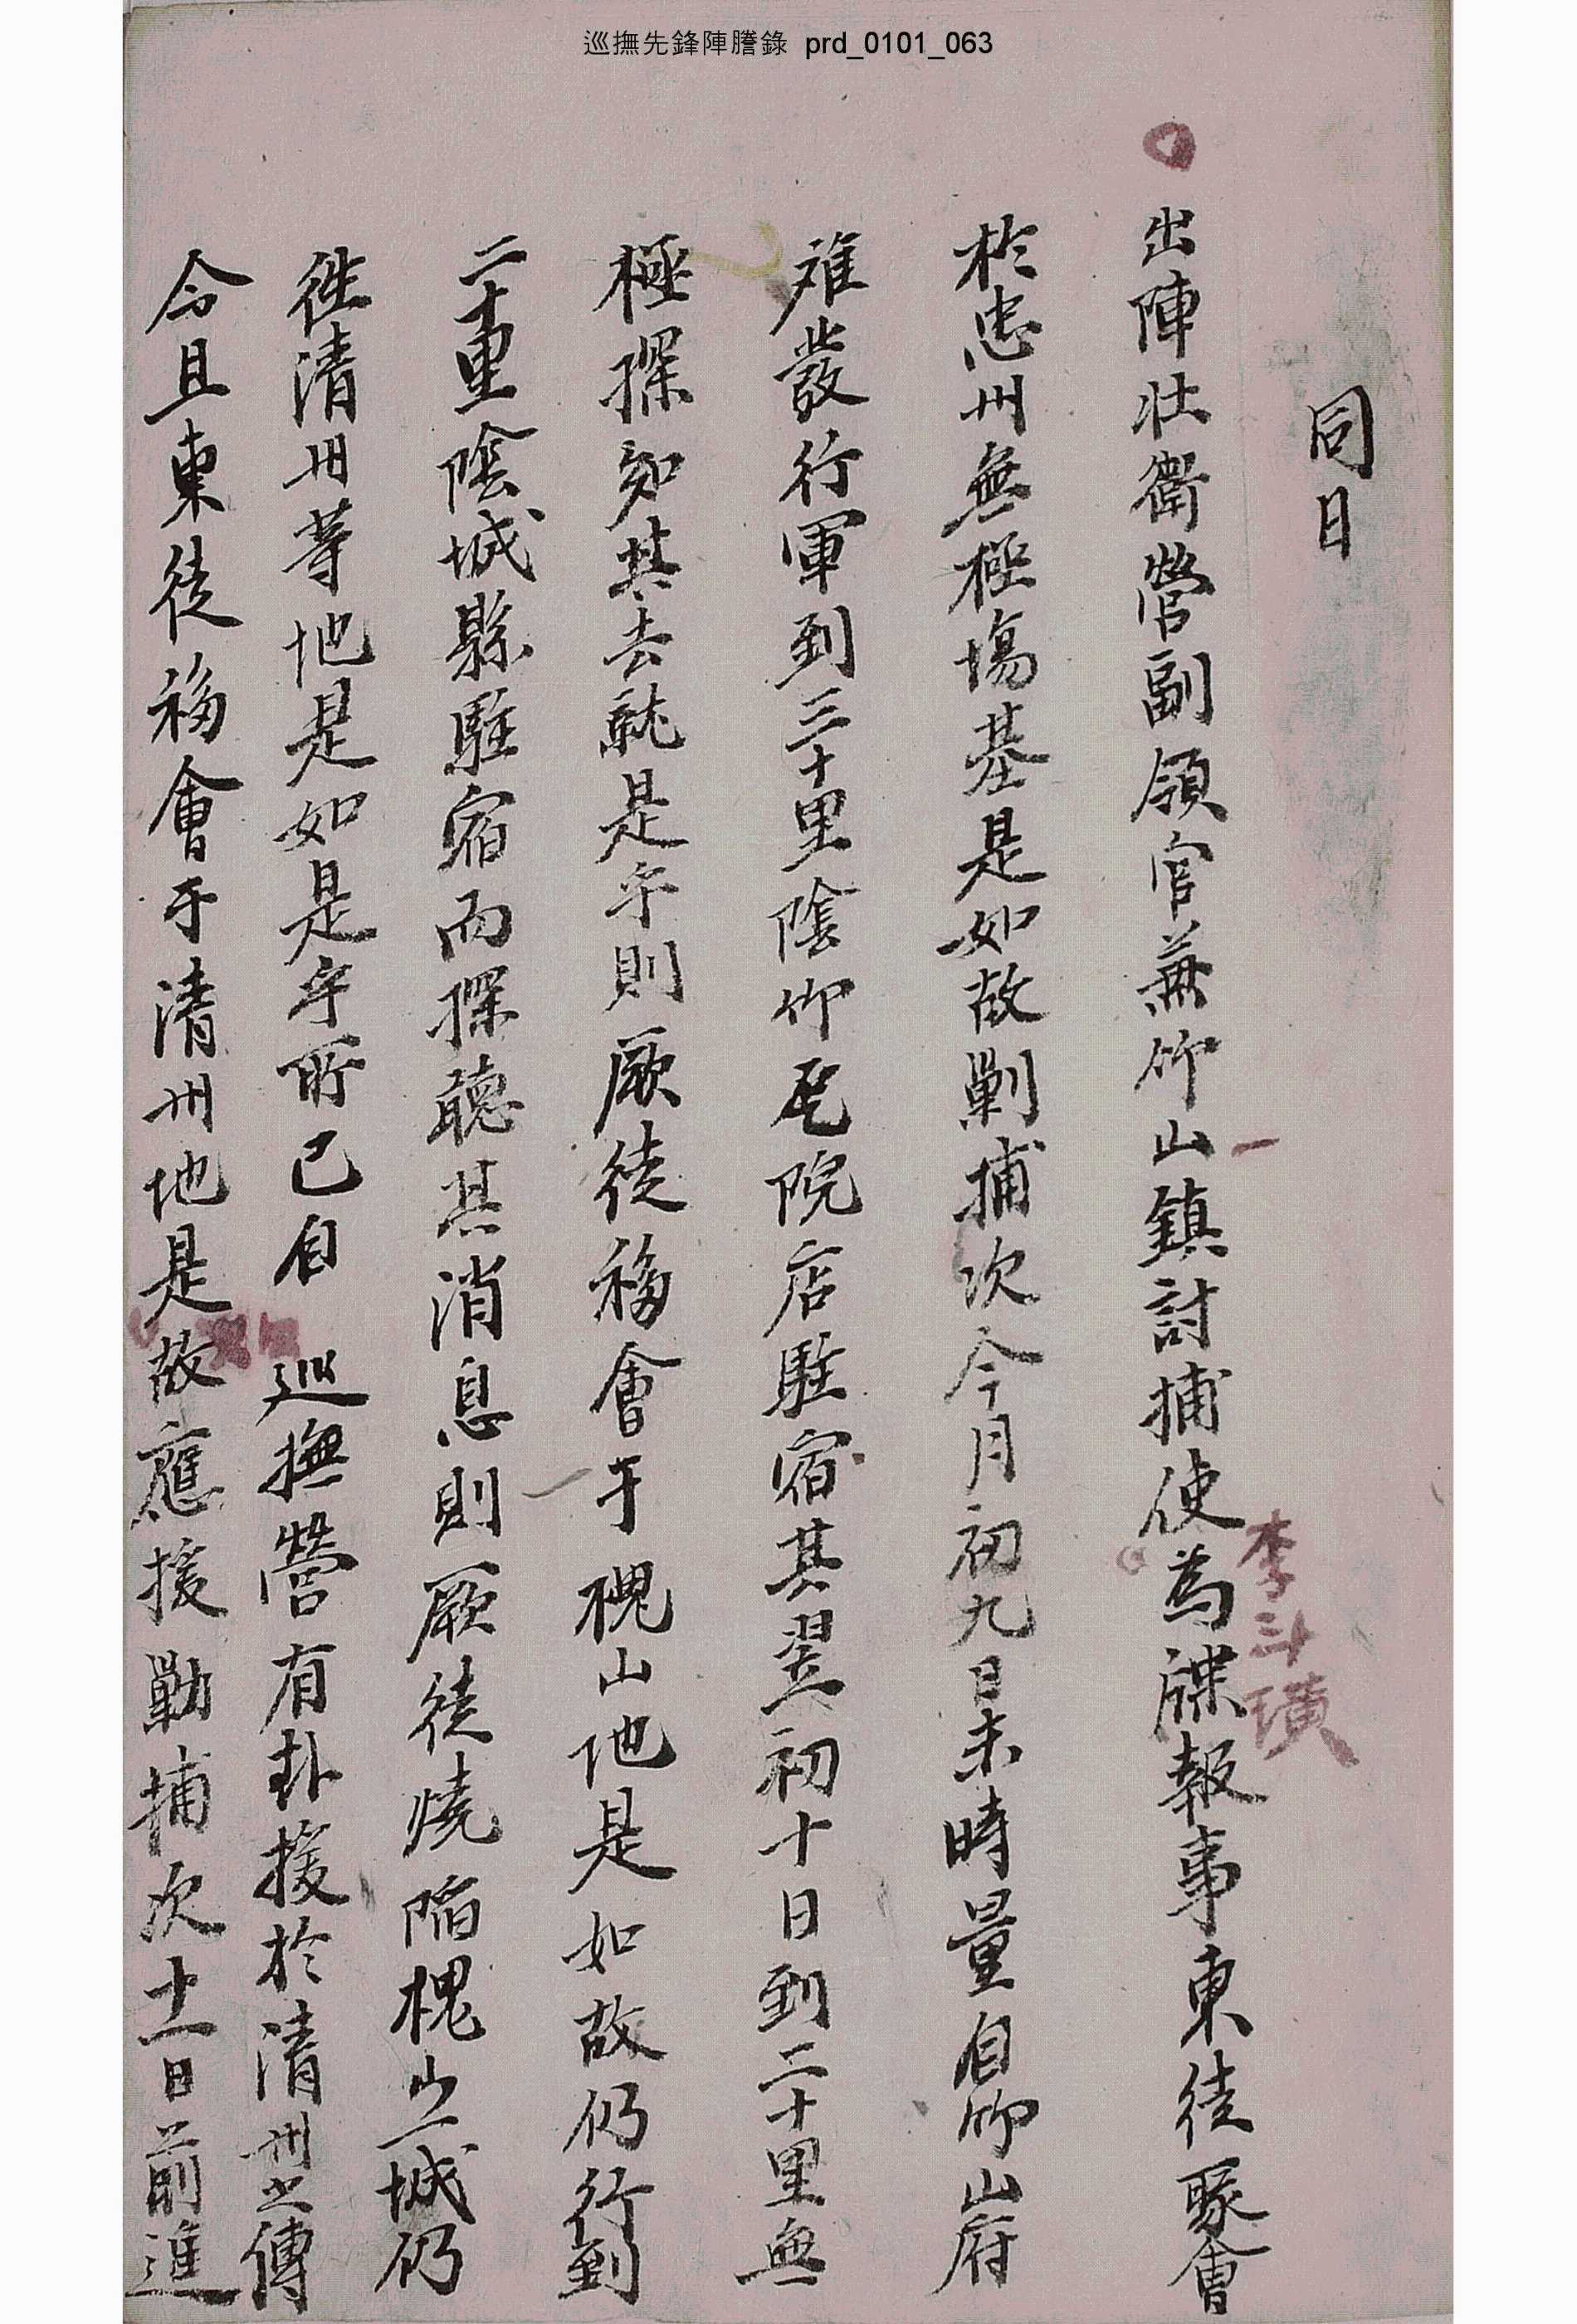 巡撫先鋒陣謄錄 prd_0101_063
同日
出陣壯衛營副領官兼竹山鎮討捕使爲牒報事東徒聚會
李斗璜
於忠州無極塲基是如故剿捕次今月初九日未時量自竹山府
离發行軍到三十里陰竹
院店駐宿其翌初十日到二十里無
極探知其去就是乎則厥徒移會于槐山地是如故仍行到
二十里陰城縣駐宿而探聽其消息則厥徒燒陷槐山一城仍
徃清州等地是如是乎所已自 巡撫營有赴援於清州之傳
令且東徒移會于清州地是故應援勦捕次十一日前進